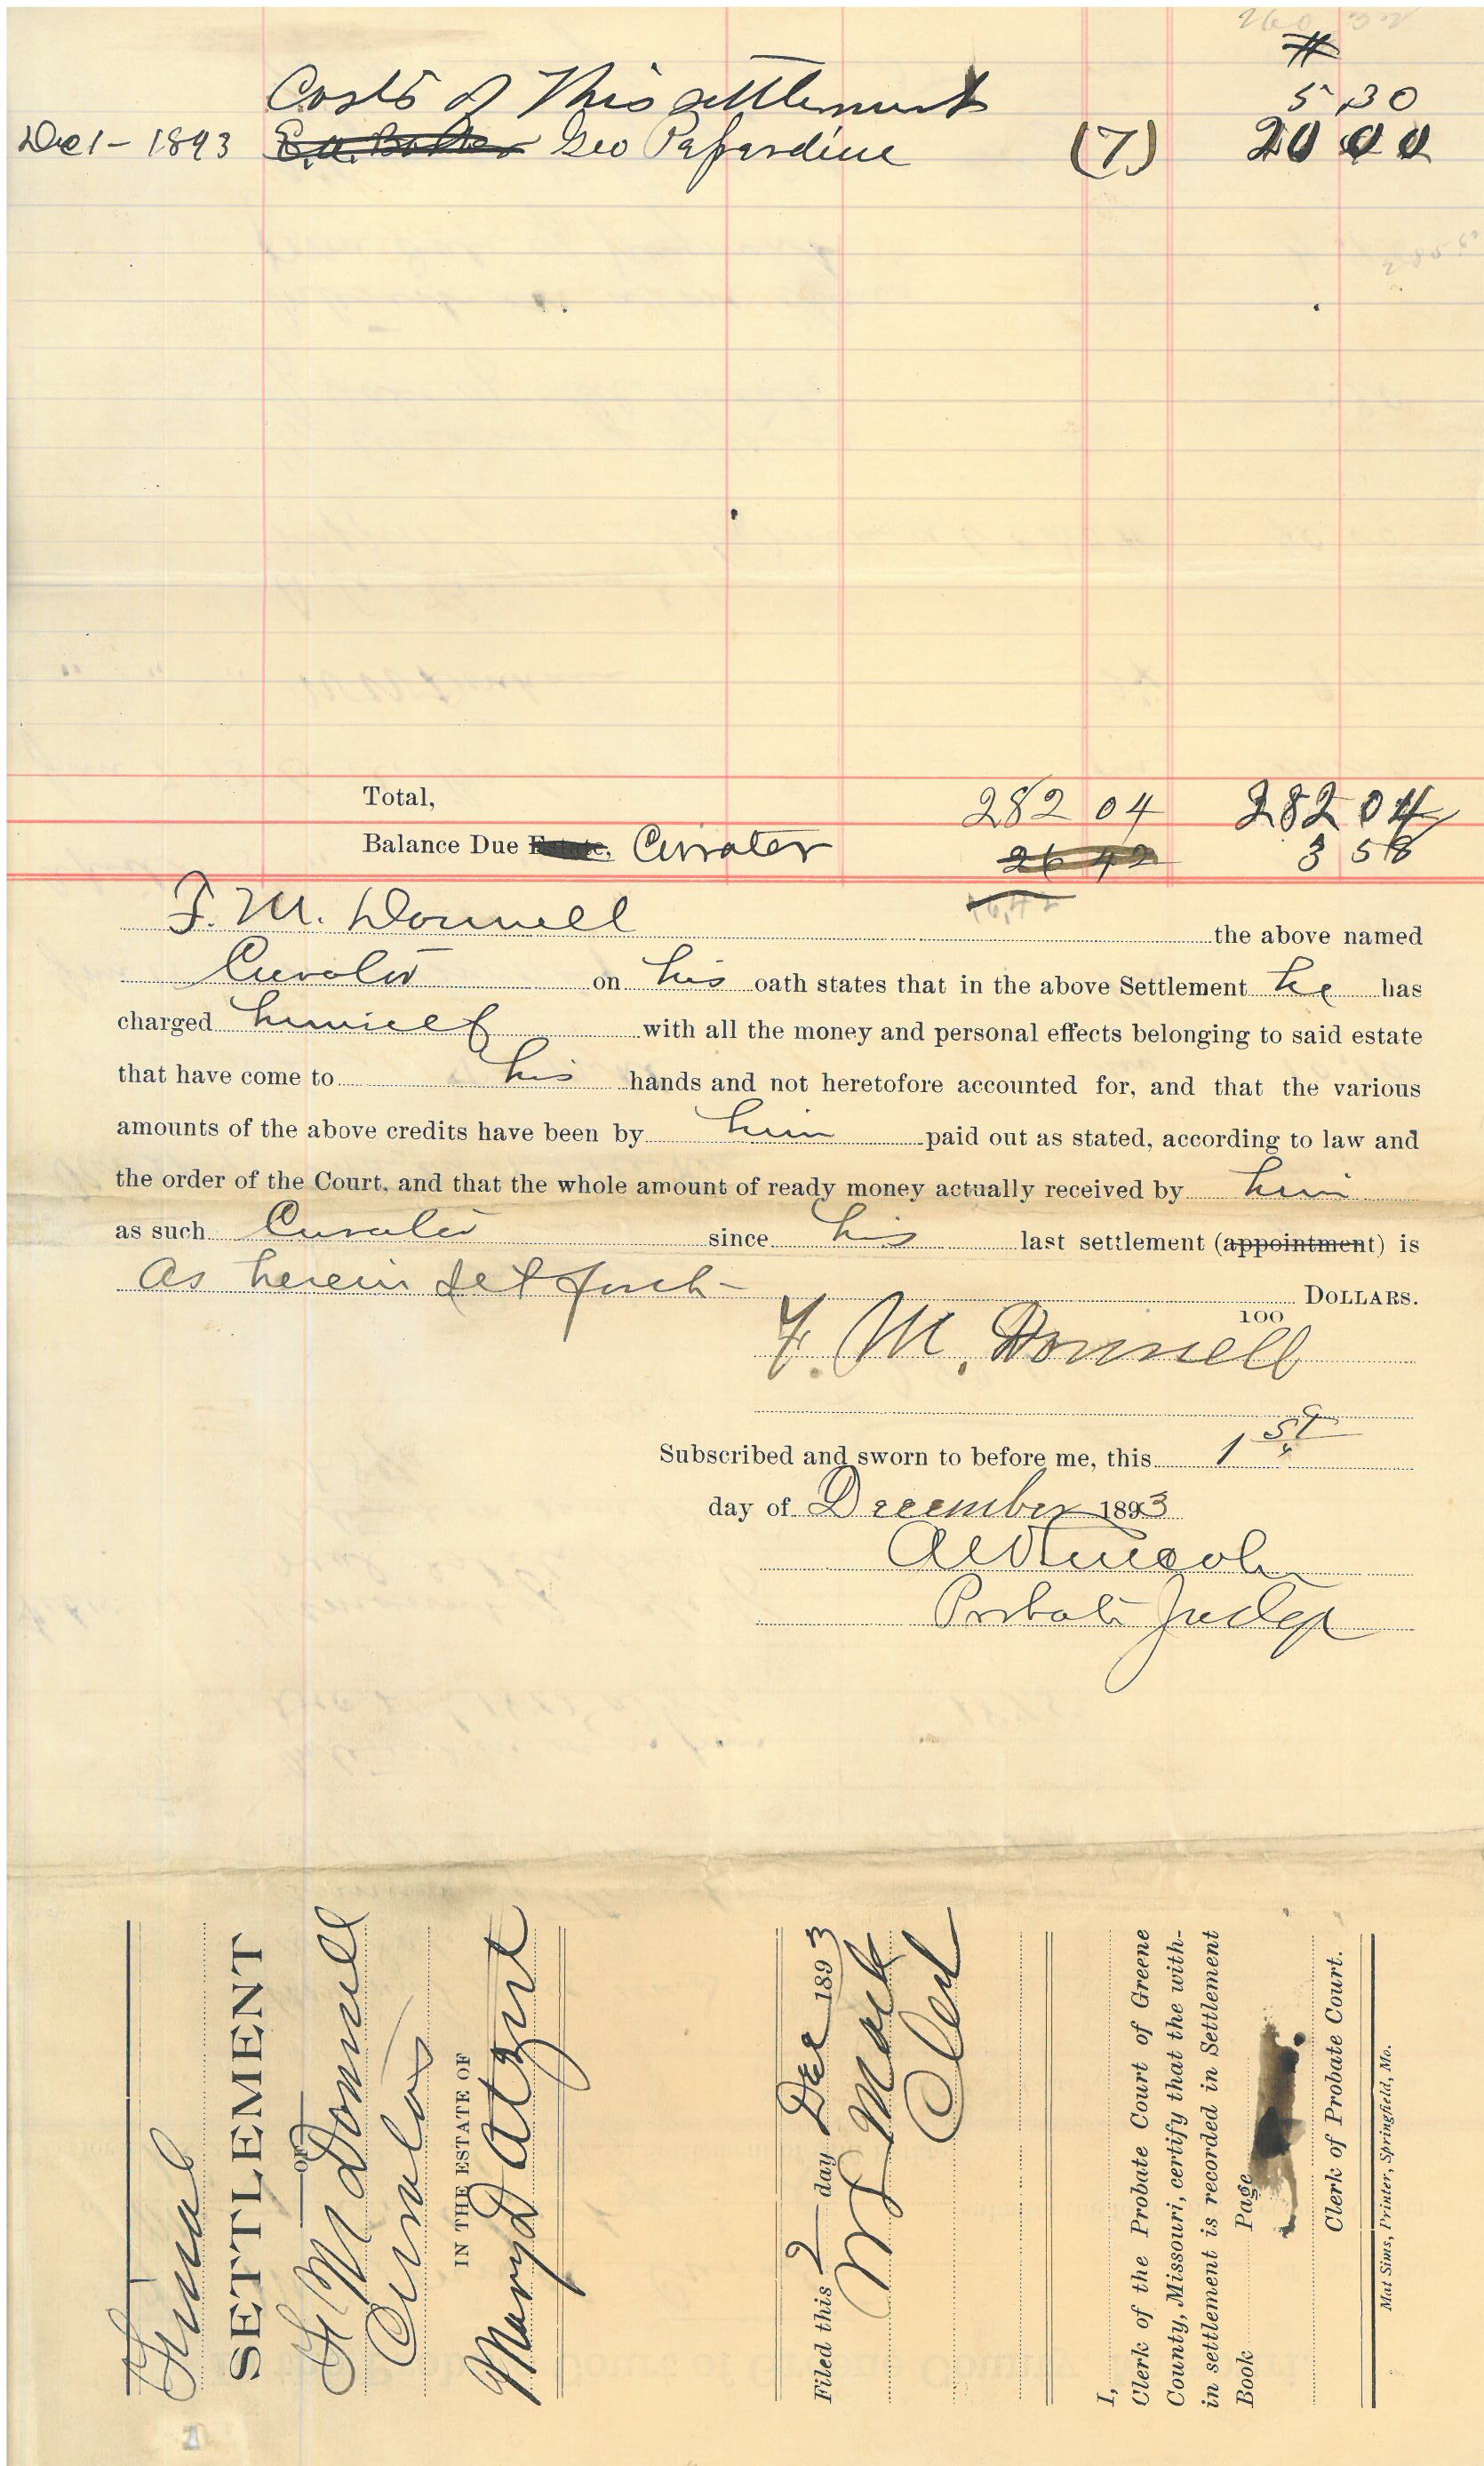 260 32
#
Costs of this settlement 5 30
Dec 1 - 1893 Geo Pafardine (7) 20 00
Total, 282 04 282 04
Balance Due Estate, Curator 26 42 3 58
F. M. Donnell the above named
Curator on his oath states that in the above Settlement he has
charged himself with all the money and personal effects belonging to said estate
that have come to his hands and not heretofore accounted for, and that the various
amounts of the above credits have been by him paid out as stated, according to law and
the order of the Court, and that the whole amount of ready money actually received by him
as such Curator since his last settlement (appointment) is
As herein set forth DOLLARS.
100
F. M. Donnell
Subscribed and sworn to before me, this 1st
day of December 1893
Lincoln
Probate Judge
Final
SETTLEMENT
OF
F M Donnell
Curator
IN THE ESTATE OF
Mary D Atzert
Filed this 2 day Dec 1893
Mack
Clerk
I,
Clerk of the Probate Court of Greene
County, Missouri, certify that the with-
in settlement is recorded in Settlement
Book Page
Clerk of Probate Court.
Mat Sims, Printer, Springfield, Mo.